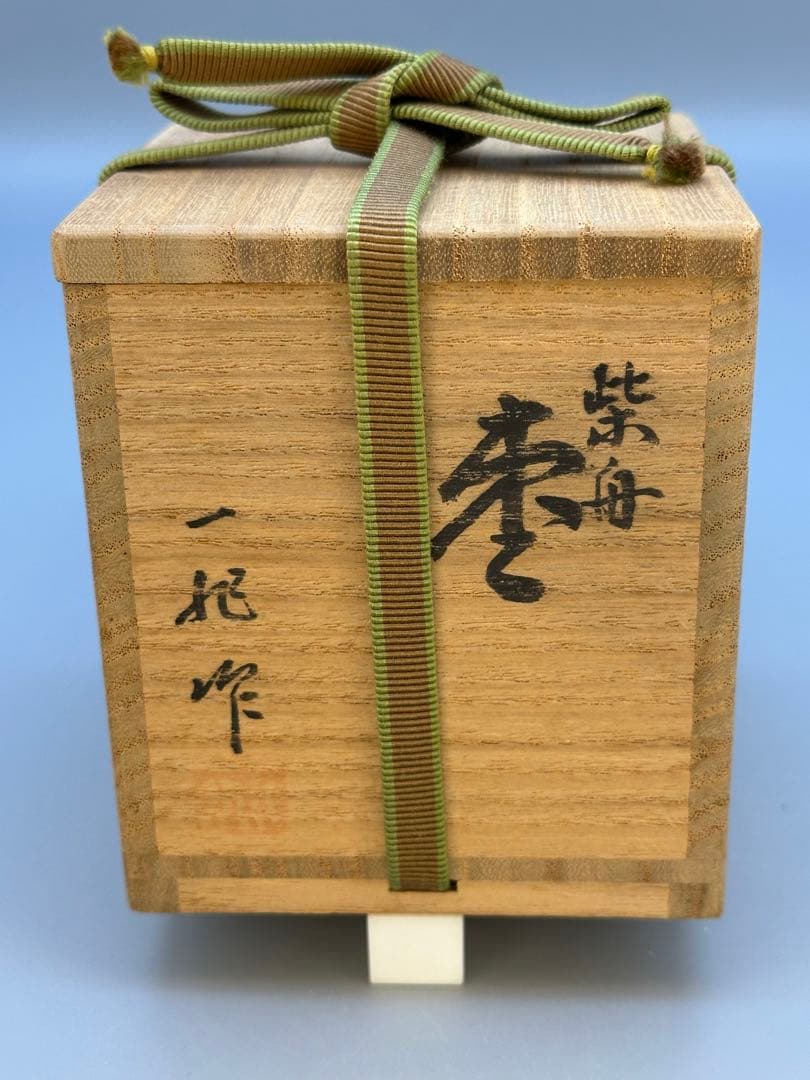 柴舟
棗
一 作